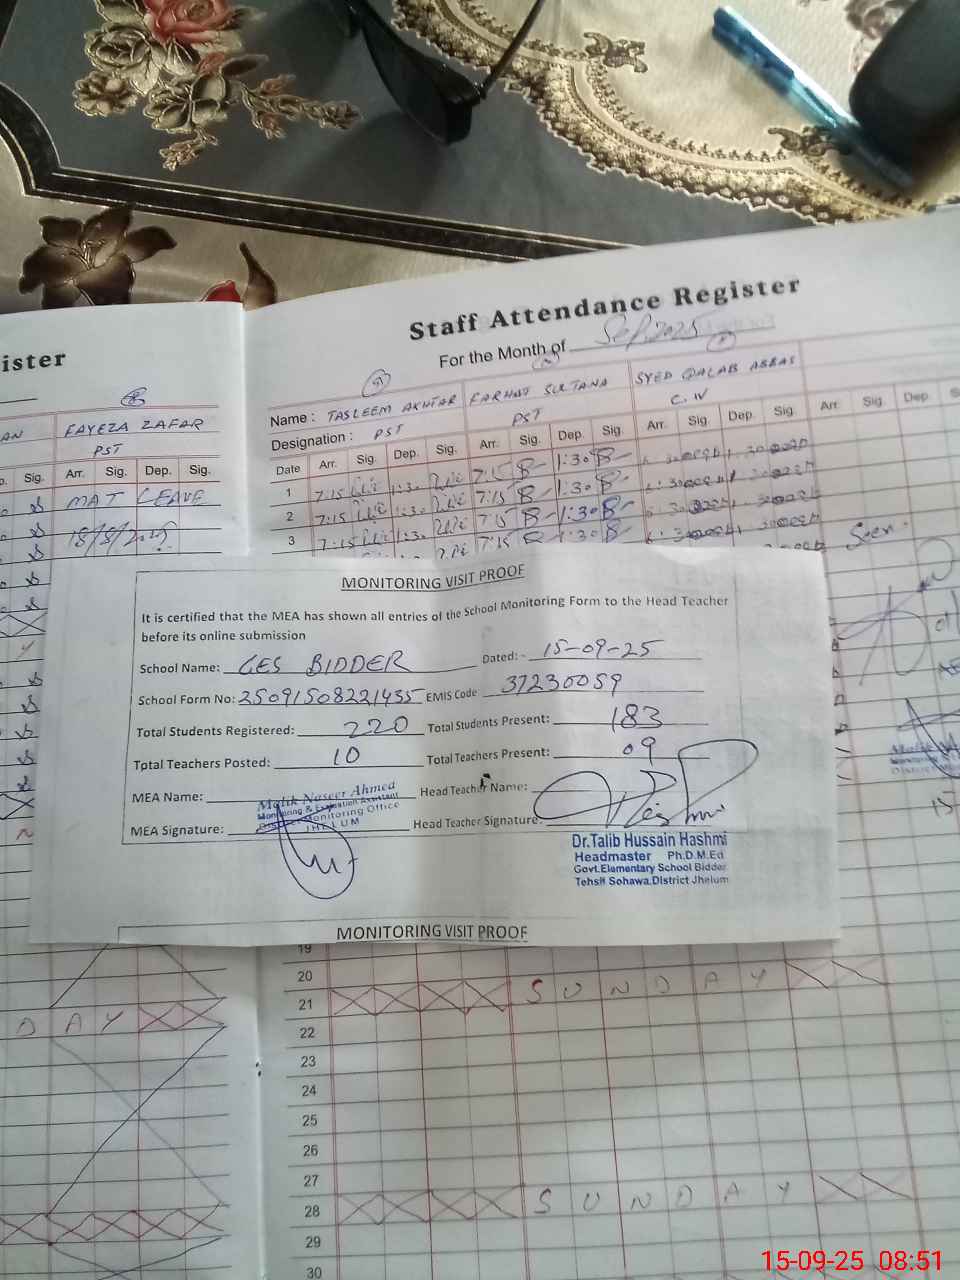 Staff Attendance Register
For the Month of Sep.2025
ister
Name : TASLEEM AKHTAR FARHAT SULTANA SYED QALAB ABBAS
Designation : PST PST C.IV
Date Arr. Sig. Dep. Sig. Arr. Sig. Dep. Sig. Arr. Sig. Dep. Sig. Arr. Sig. Dep.
1 7:15 1:30 7:15 1:30
2 7:15 1:30 7:15 1:30
3 7:15 1:30 7:15 1:30
AN FAYEZA ZAFAR
PST
Sig. Arr. Sig. Dep. Sig.
MAT LEAVE
18/8/2025
Seen.
MONITORING VISIT PROOF
It is certified that the MEA has shown all entries of the School Monitoring Form to the Head Teacher
before its online submission
School Name: GES BIDDER Dated: - 15-09-25
School Form No: 25091508221435 EMIS Code 37230059
Total Students Registered: 220 Total Students Present: 183
Total Teachers Posted: 10 Total Teachers Present: 09
MEA Name: Head Teacher Name:
Malik Naseer Ahmed
Monitoring & Evaluation Assistant
District Monitoring Office
JHELUM
MEA Signature: Head Teacher Signature:
Dr.Talib Hussain Hashmi
Headmaster Ph.D.M.Ed
Govt.Elementary School Bidder
Tehsil Sohawa.District Jhelum
MONITORING VISIT PROOF
19
20
21 SUNDAY
DAY
22
23
24
25
26
27
28 SUNDAY
29
30
15-09-25 08:51